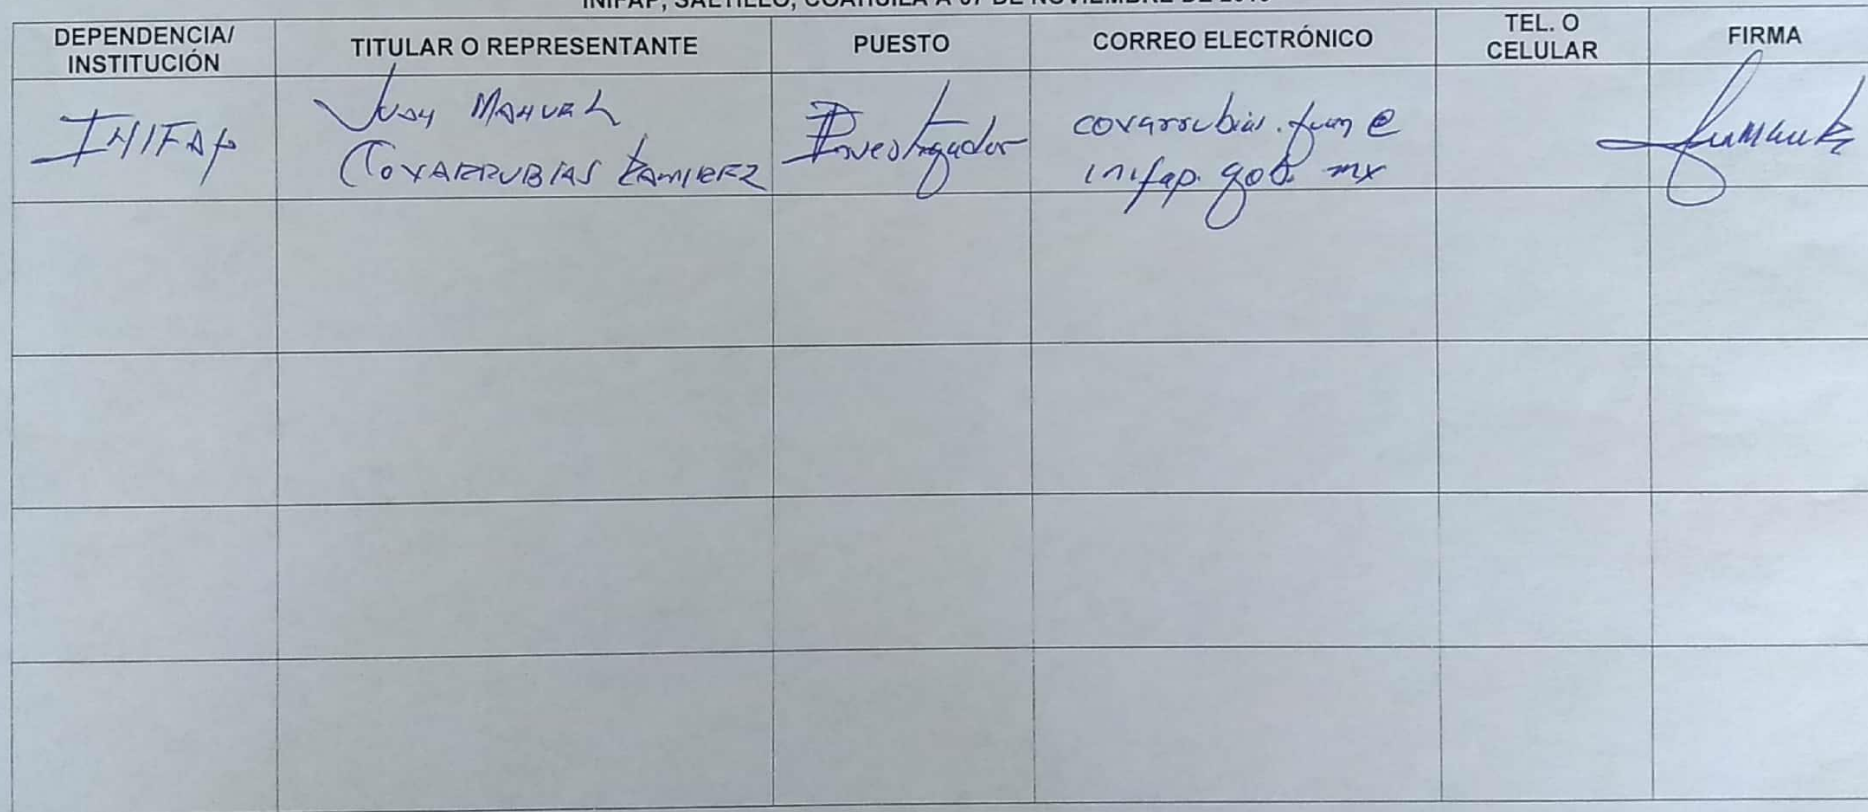 INIFAP, SALTILLO, COAHUILA A 07 DE NOVIEMBRE DE
DEPENDENCIA/ INSTITUCIÓN TITULAR O REPRESENTANTE PUESTO CORREO ELECTRÓNICO TEL. O CELULAR FIRMA
INIFAP
Juan Manuel
Covarrubias Ramirez
Investigador
covarrubias.juan@
inifap.gob.mx